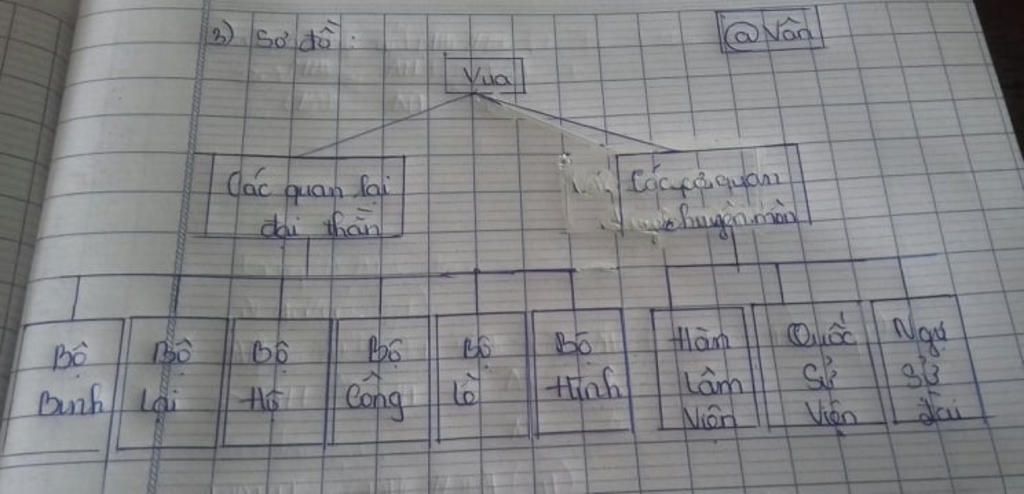 3) Sơ đồ:
@ Vân
Vua
Các quan lại
đại thần
Các cơ quan
chuyên môn
Bộ
Binh
Bộ
Lại
Bộ
Hộ
Bộ
Công
Bộ
Lễ
Bộ
Hình
Hàn
Lâm
Viện
Quốc
Sử
Viện
Ngự
Sử
Đài